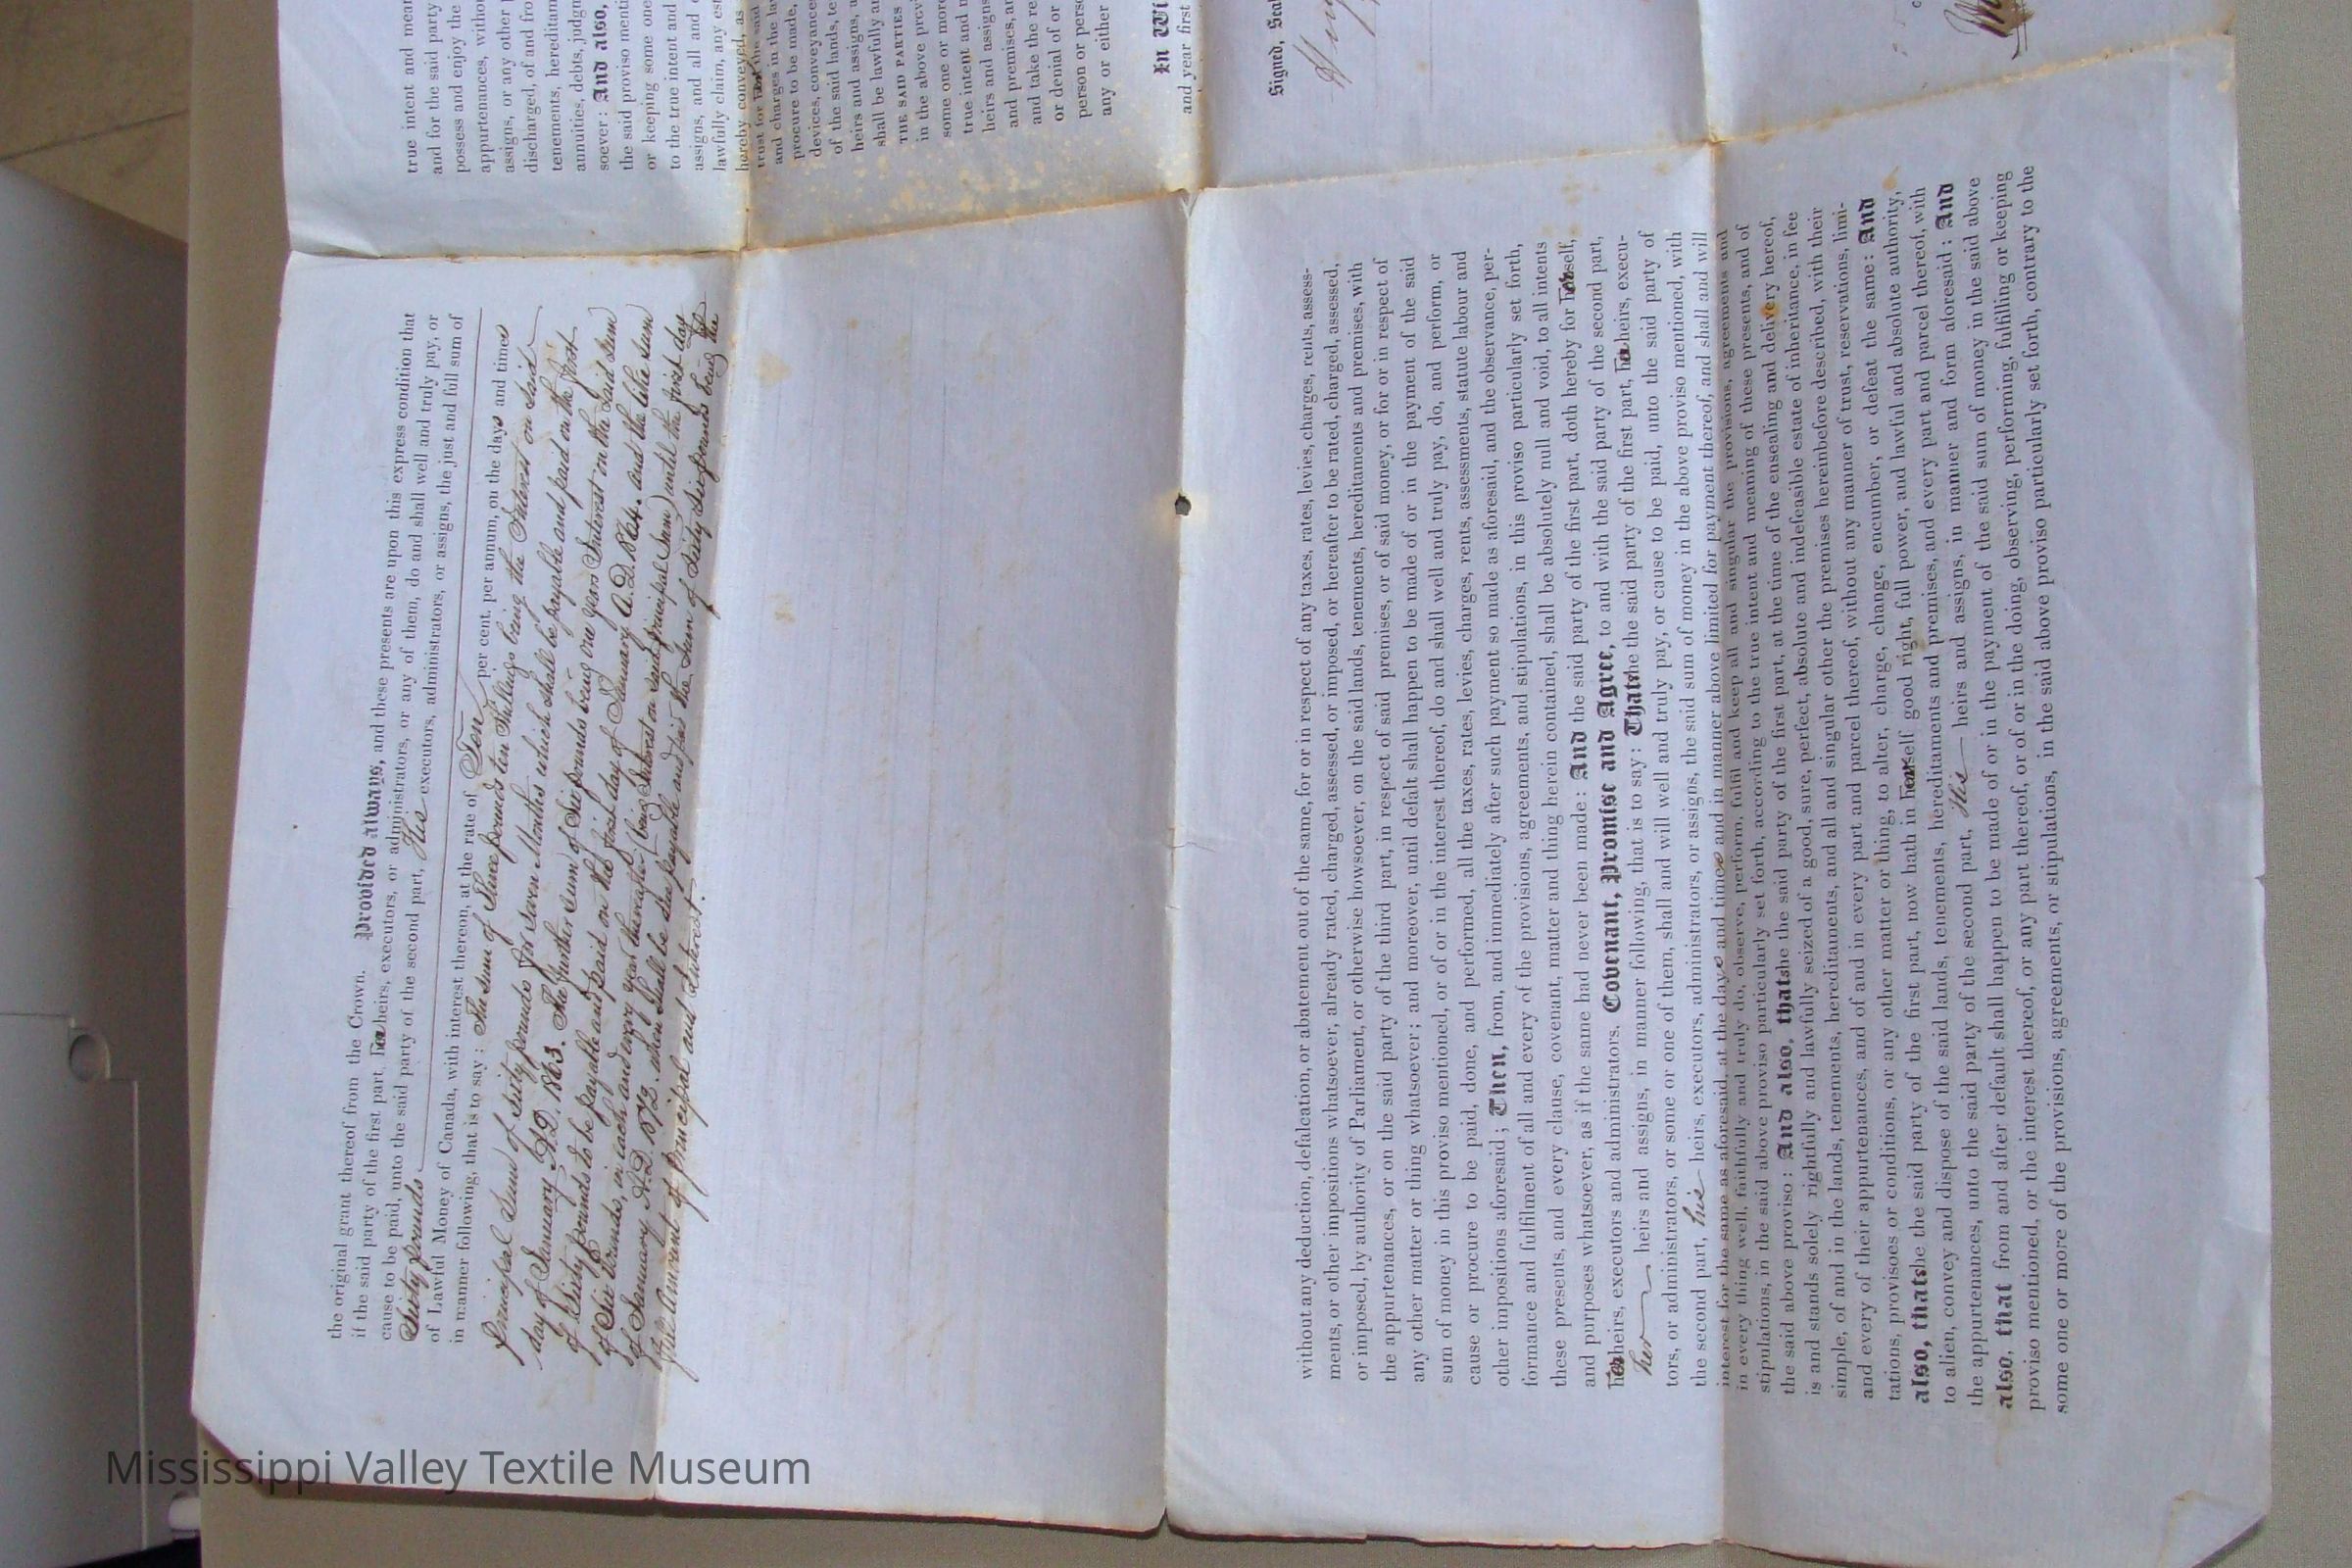 the original grant thereof from the Crown. Provided always, and these presents are upon this express condition that
if the said party of the first part, her heirs, executors, or administrators, or any of them, do and shall well and truly pay, or
cause to be paid, unto the said party of the second part, His executors, administrators, or assigns, the just and full sum of
Sixty pounds
of Lawful Money of Canada, with interest thereon, at the rate of Ten per cent. per annum, on the days and times
in manner following, that is to say: The sum of Three pounds ten Shillings being the Interest on Said
principal Sum of Sixty pounds for seven Months which shall be payable and paid on the first
day of January A.D. 1863. The further sum of Six pounds being one years Interest on the Said Sum
of Sixty pounds to be payable and paid on the first day of January A.D. 1864. and the like sum
of Six Pounds, in each and every year thereafter (being Interest on said principal Sum) until the first day
of January A.D. 1872. when shall be due payable and paid the Sum of Sixty Six pounds being the
full amount of Principal and Interest.
without any deduction, defalcation, or abatement out of the same, for or in respect of any taxes, rates, levies, charges, rents, assess-
ments, or other impositions whatsoever, already rated, charged, assessed, or imposed, or hereafter to be rated, charged, assessed,
or imposed, by authority of Parliament, or otherwise howsoever, on the said lands, tenements, hereditaments and premises, with
the appurtenances, or on the said party of the third part, in respect of said premises, or of said money, or for or in respect of
any other matter or thing whatsoever; and moreover, until defalt shall happen to be made of or in the payment of the said
sum of money in this proviso mentioned, or of or in the interest thereof, do and shall well and truly pay, do, and perform, or
cause or procure to be paid, done, and performed, all the taxes, rates, levies, charges, rents, assessments, statute labour and
other impositions aforesaid; Then, from, and immediately after such payment so made as aforesaid, and the observance, per-
formance and fulfilment of all and every of the provisions, agreements, and stipulations, in this proviso particularly set forth,
these presents, and every clause, covenant, matter and thing herein contained, shall be absolutely null and void, to all intents
and purposes whatsoever, as if the same had never been made: And the said party of the first part, doth hereby for herself,
her heirs, executors and administrators. Covenant, Promise and Agree, to and with the said party of the second part,
her heirs and assigns, in manner following, that is to say: That the said party of the first part, her heirs, execu-
tors, or administrators, or some or one of them, shall and will well and truly pay, or cause to be paid, unto the said party of
the second part, his heirs, executors, administrators, or assigns, the said sum of money in the above proviso mentioned, with
interest for the same as aforesaid, at the days and times and in manner above limited for payment thereof, and shall and will
in every thing well, faithfully and truly do, observe, perform, fulfil and keep all and singular the provisions, agreements and
stipulations, in the said above proviso particularly set forth, according to the true intent and meaning of these presents, and of
the said above proviso: And also, that she the said party of the first part, at the time of the ensealing and delivery hereof,
is and stands solely rightfully and lawfully seized of a good, sure, perfect, absolute and indefeasible estate of inheritance, in fee
simple, of and in the lands, tenements, hereditaments, and all and singular other the premises hereinbefore described, with their
and every of their appurtenances, and of and in every part and parcel thereof, without any manner of trust, reservations, limi-
tations, provisoes or conditions, or any other matter or thing, to alter, charge, change, encumber, or defeat the same: And
also, that she the said party of the first part, now hath in herself good right, full power, and lawful and absolute authority,
to alien, convey and dispose of the said lands, tenements, hereditaments and premises, and every part and parcel thereof, with
the appurtenances, unto the said party of the second part, His heirs and assigns, in manner and form aforesaid: And
also, that from and after default shall happen to be made of or in the payment of the said sum of money in the said above
proviso mentioned, or the interest thereof, or any part thereof, or of or in the doing, observing, performing, fulfilling or keeping
some one or more of the provisions, agreements, or stipulations, in the said above proviso particularly set forth, contrary to the
true intent and mean
and for the said party
possess and enjoy the
appurtenances, withou
assigns, or any other
discharged, of and fro
tenements, hereditam
annuities, debts, judgn
soever: And also,
the said proviso menti
or keeping some one
to the true intent and
assigns, and all and
lawfully claim, any est
hereby conveyed, as
trust for the said
and charges in the la
procure to be made,
devices, conveyance
of the said lands, te
heirs and assigns, a
shall be lawfully an
THE SAID PARTIES
in the above prov
some one or more
true intent and m
heirs and assigns
and premises, an
and take the re
or denial of or
person or perso
any or either
In Wi
and year first
Signed, Seal
Mississippi Valley Textile Museum